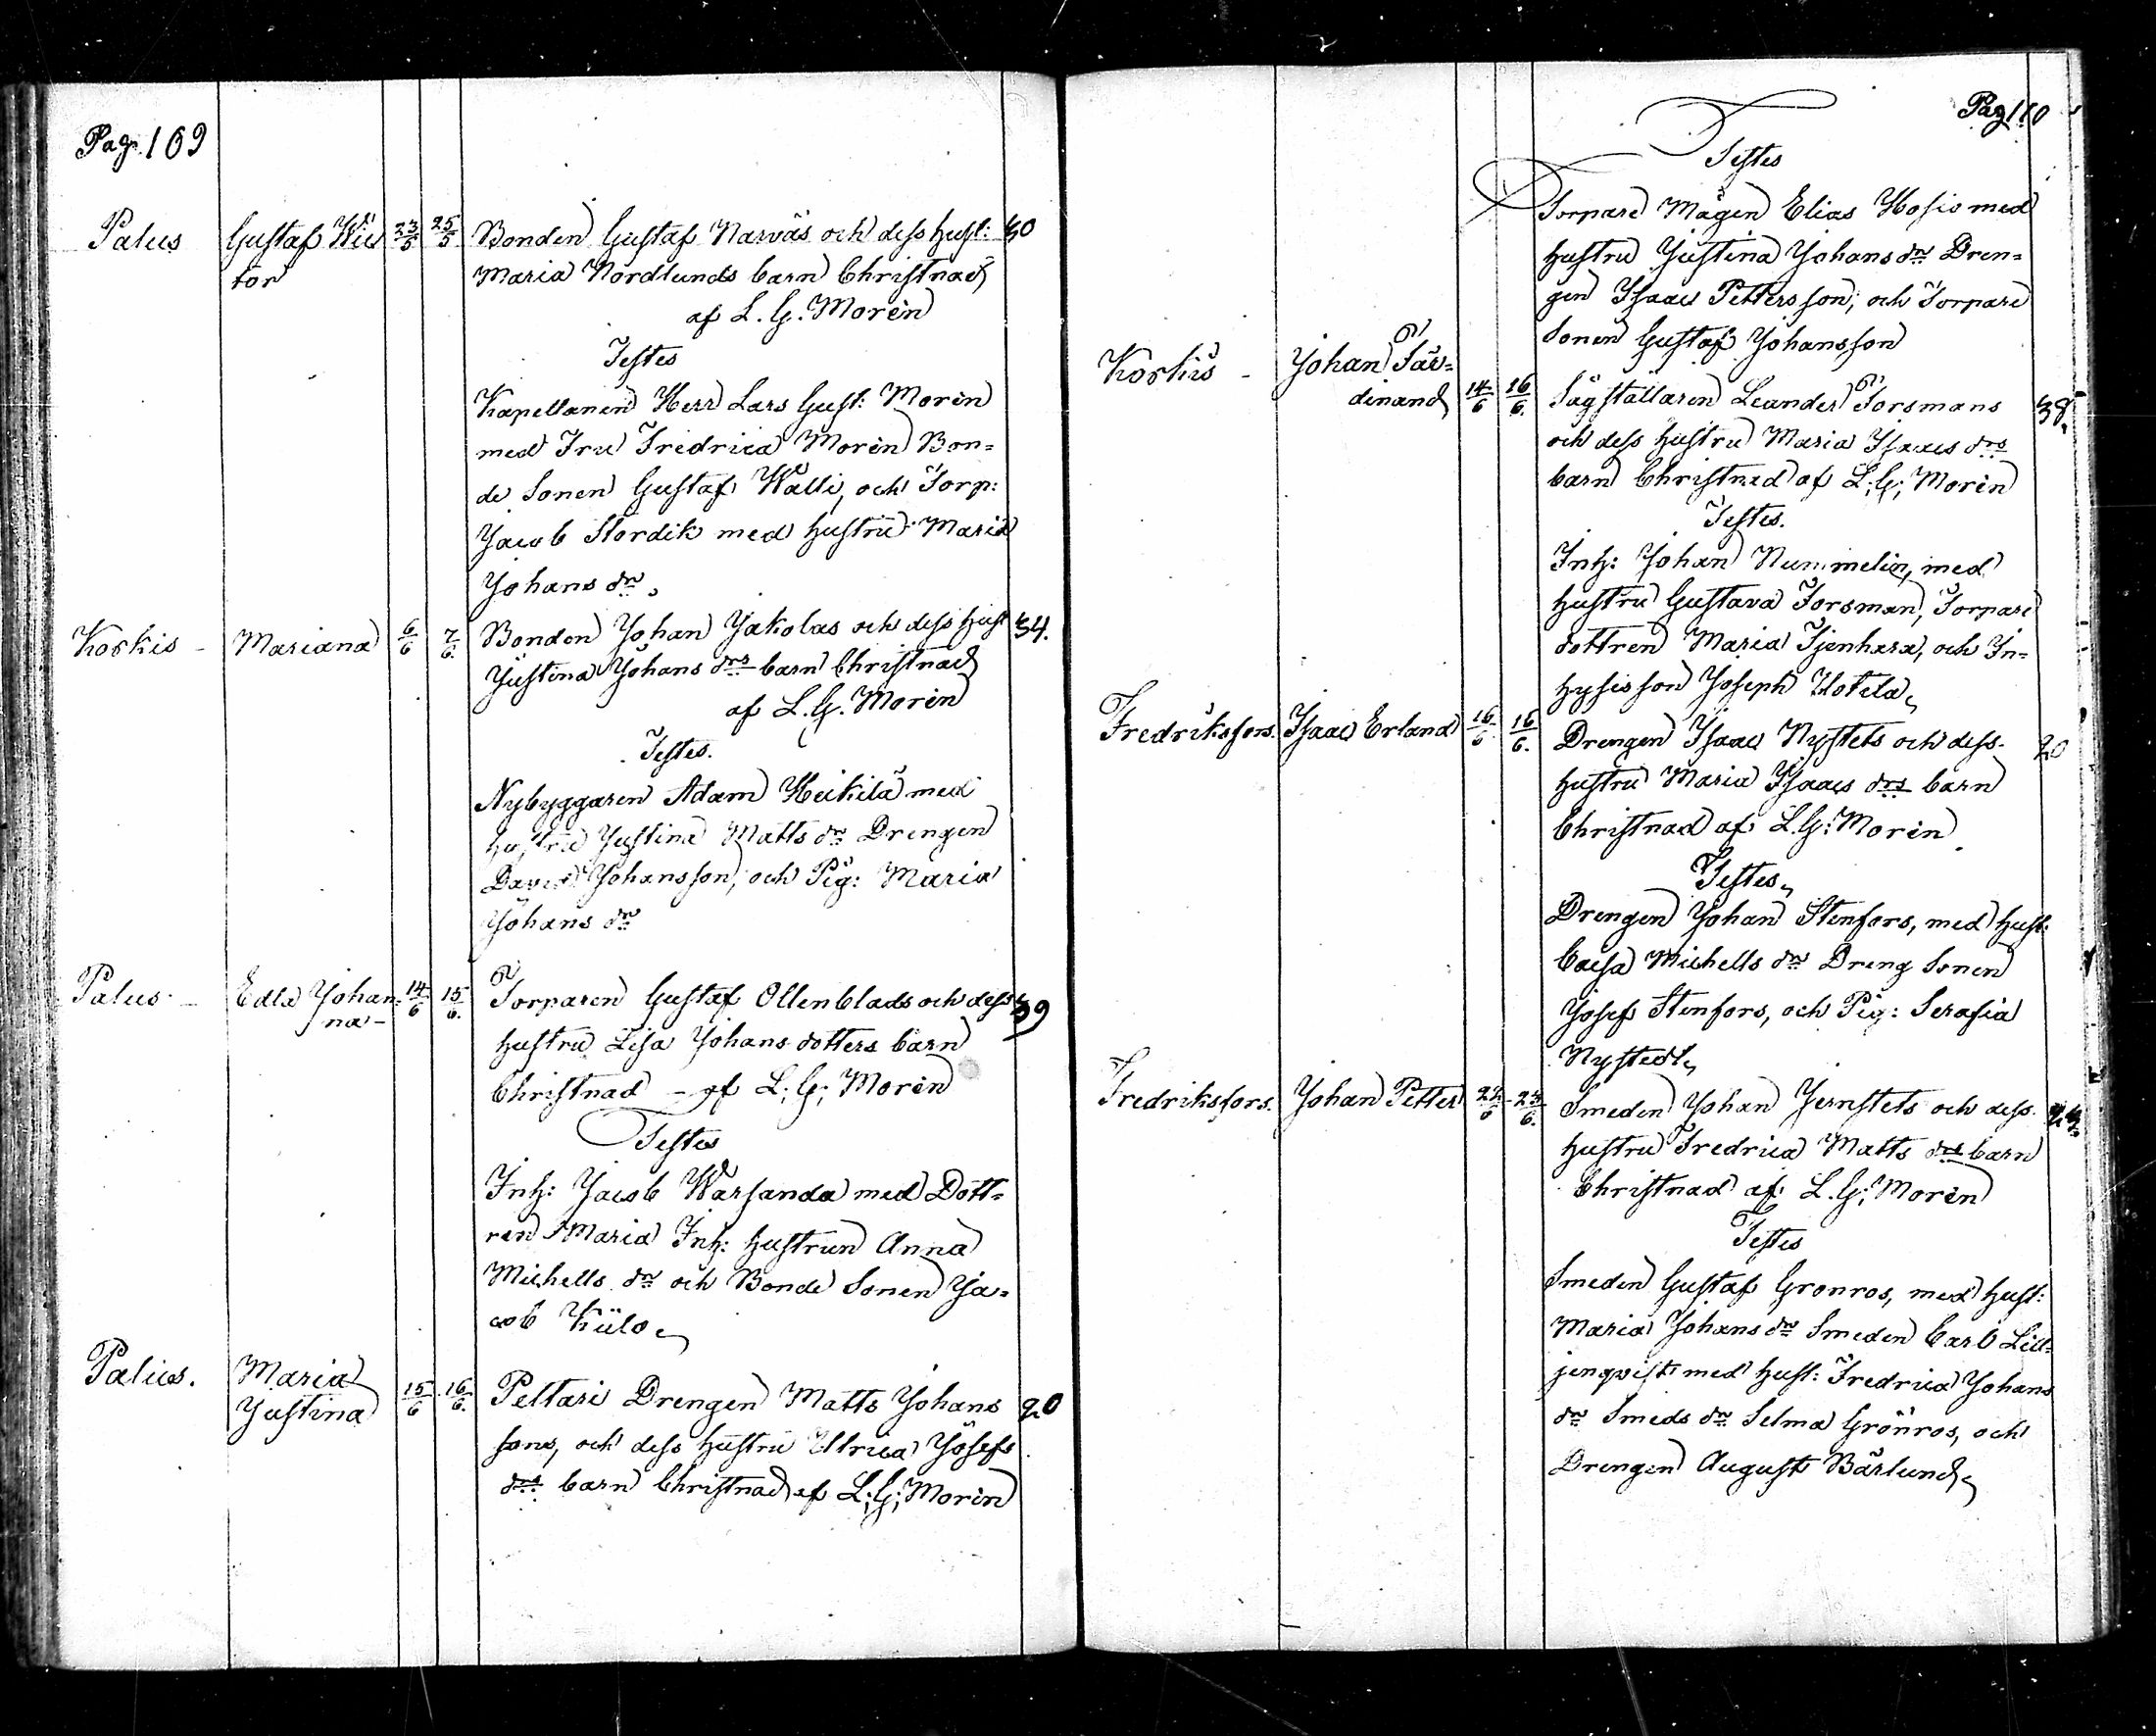 Pag. 109
Palus Gustaf Wic= 23/5 25/5 Bonden Gustaf Narväs och dess Hust: 40
tor Maria Nordlunds barn Christnad
af L. G. Morén
Testes
Kapellanen Herr Lars Gust: Morén
med Fru Fredrica Morén Bon=
de Sonen Gustaf Walli, och Torp:
Jacob Stordik med hustru Maria
Johans dr
Koskis - Mariana 6/6 7/6. Bonden Johan Jakolas och dess Hust 34.
Justina Johans drs barn Christnad
af L. G. Morén
Testes.
Nybyggaren Adam Heikilä med
hustru Justina Matts dr Drengen
David Johansson, och Pig: Maria
Johans dr
Palus - Edla Johan= 14/6 15/6. Torparen Gustaf Ollenblads och dess 39
na - hustru Lisa Johans dotters barn
Christnad - af L; G; Morén
Testes
Inh: Jacob Warsanda med Dött=
ren Maria Inh: hustrun Anna
Michells dr och Bonde Sonen Ja=
cob
Palus. Maria 15/6 16/6. Pettari Drengen Matts Johans 20
Justina sons, och dess hustru Ulrica Josefs
drs barn Christnad af L; G; Morén
Pag 110
Testes
Torpare Mågen Elias Hosio med
hustru Justina Johans dr Dren=
gen Isaac Pettersson, och Torpare
Sonen Gustaf Johansson
Koskis - Johan Fär=
dinand 14/6 16/6. Sågställaren Leander Forsmans 38.
och dess hustru Maria Isaacs drs
barn Christnad af L; G; Morén
Testes.
Inh: Johan Nummelin, med
hustru Gustava Forsman, Torpare
dottren Maria, och In=
hysis son Joseph
Fredriksfors. Isaac Erland 16/6 16/6. Drengen Isaac Nystets och dess 20
hustru Maria Isaacs drs barn
Christnad af L. G: Morén
Testes
Drengen Johan Stenfors, med Hust:
Caisa Michells dr Dreng Sonen
Josef Stenfors, och Pig: Serafia
Nystedt
Fredriksfors. Johan Petter 22/6 23/6. Smeden Johan Jernstets och dess
hustru Fredrica Matts drs barn
Christnad af L. G; Morén
Testes
Smeden Gustaf Grönros, med Hust:
Maria Johans dr Smeden Carl Lill=
jenqvist med Hust: Fredrica Johans
dr Smeds dr Selma Grönros, och
Drengen August Bärlund